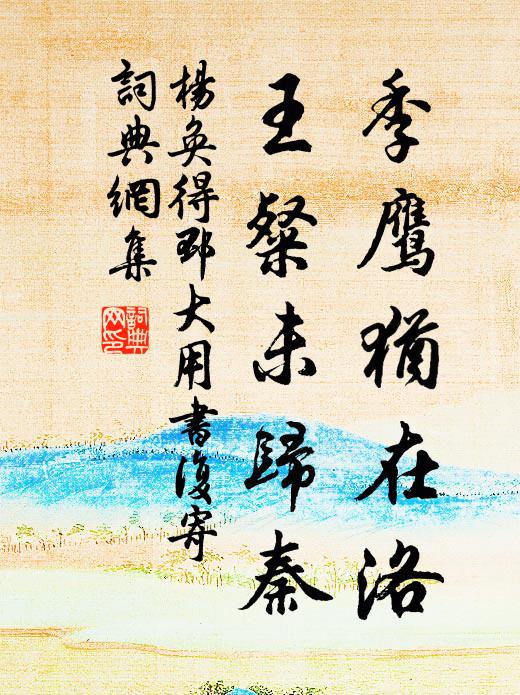 季鷹猶在洛
王粲未歸秦
楊奐得邳大用書復寄
詞典網集
詞典
网印